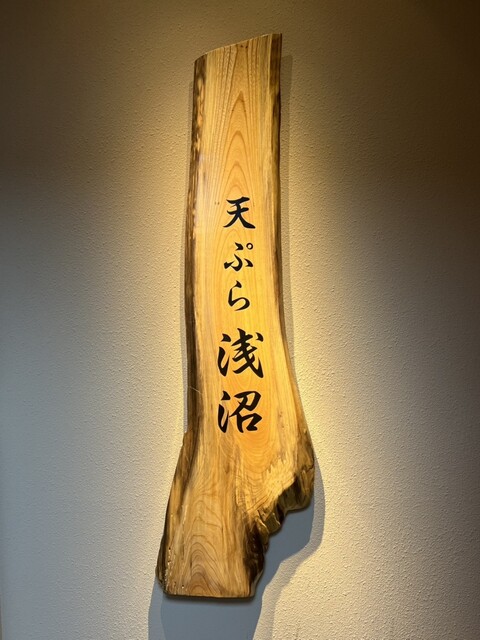 天ぷら 浅沼